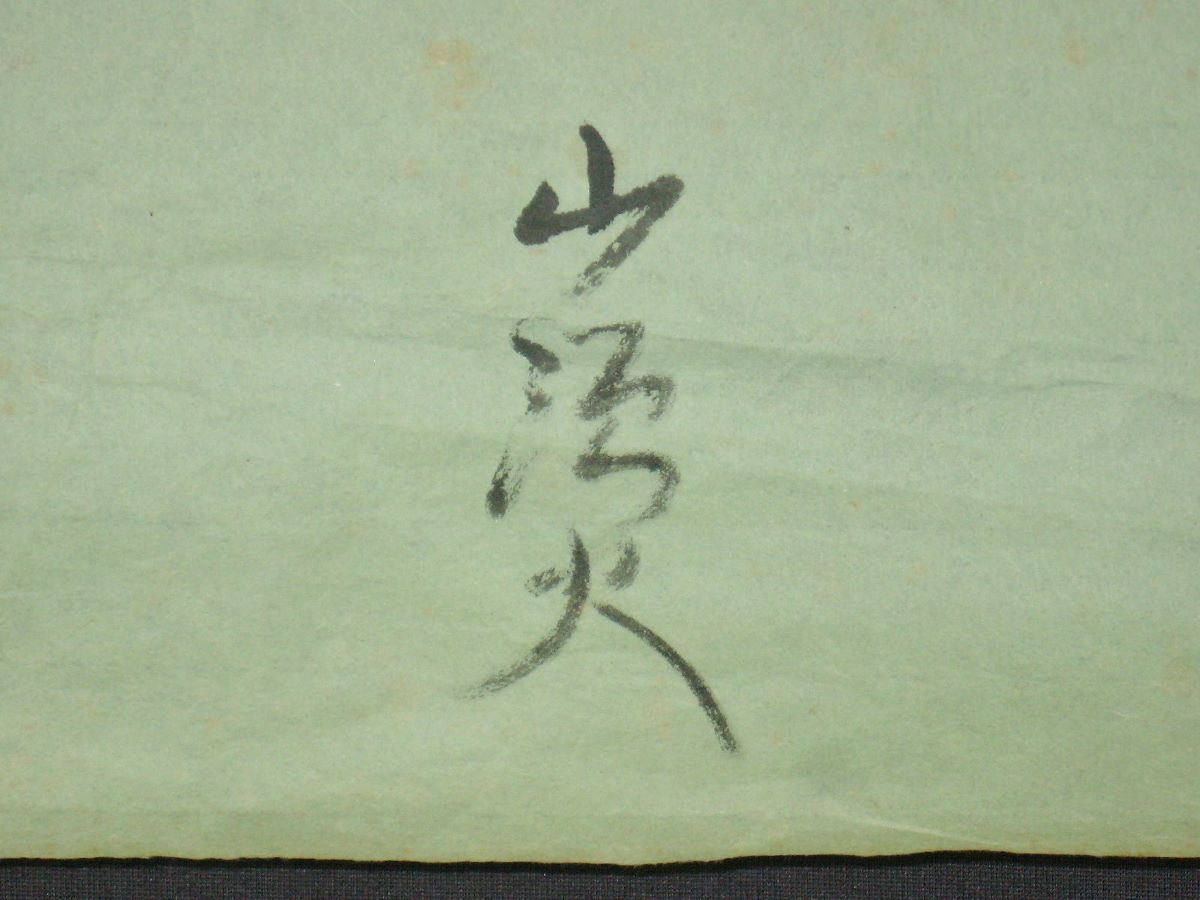 山頭火